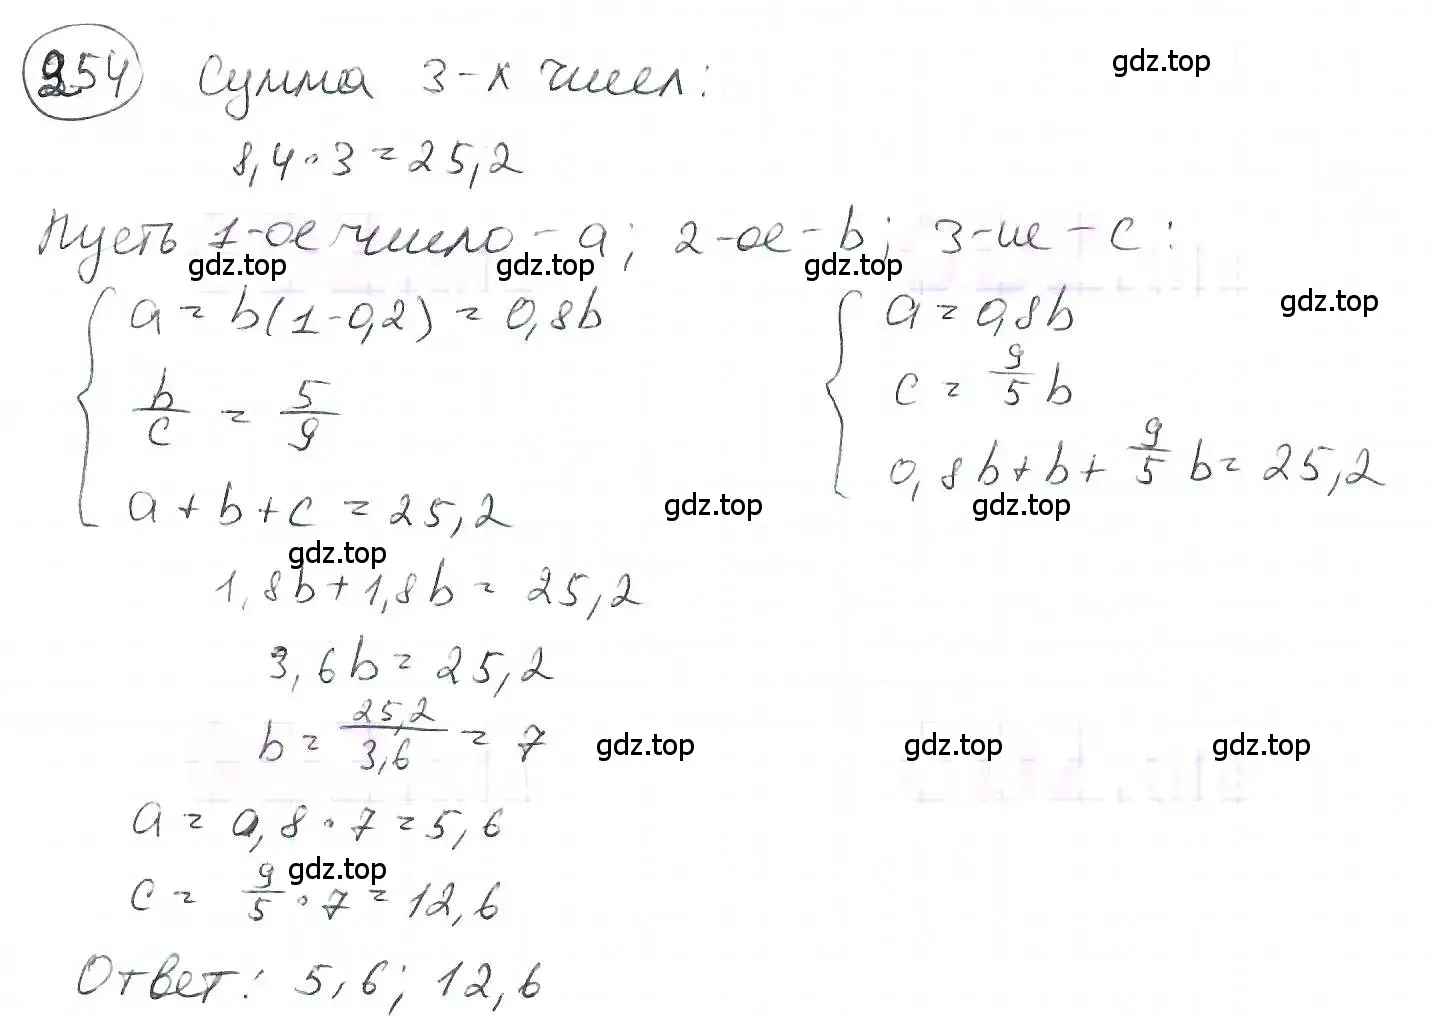 254 Сумма 3-х чисел: gdz.top
8,4 · 3 = 25,2
Пусть 1-ое число - a; 2-ое - b; 3-ье - c:
gdz.top gdz.top gdz.top gdz.top
a = b(1-0,2) = 0,8b
b/c = 5/9
a + b + c = 25,2
a = 0,8b
c = 9/5 b
0,8b + b + 9/5 b = 25,2
gdz.top gdz.top
gdz.top
1,8b + 1,8b = 25,2
3,6b = 25,2
b = 25,2/3,6 = 7 gdz.top gdz.top gdz.top
a = 0,8 · 7 = 5,6
gdz.top
c = 9/5 · 7 = 12,6
Ответ: 5,6; 12,6